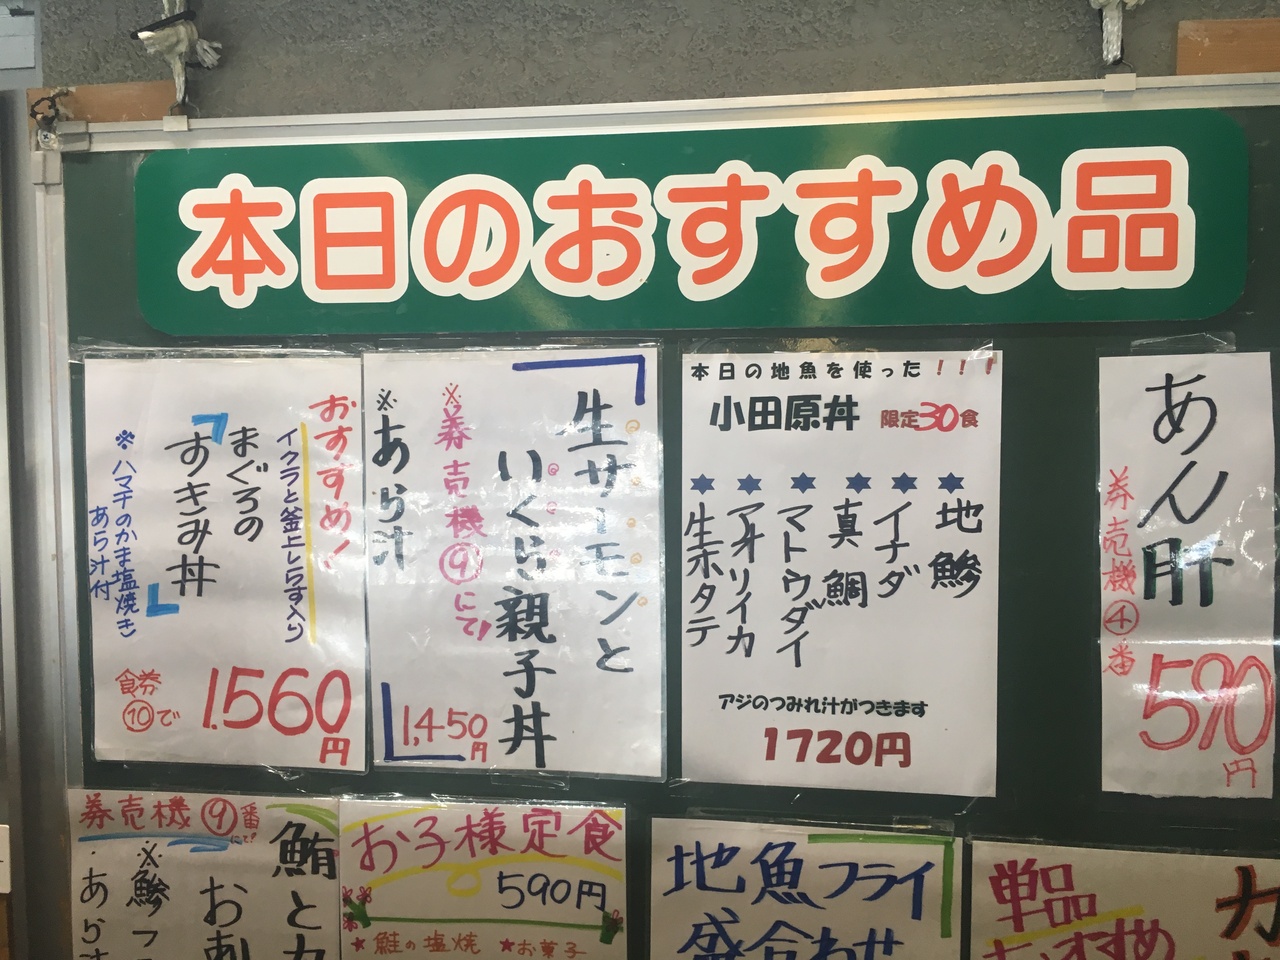 本日のおすすめ品
おすすめ!
イクラと釜上しらす入り
まぐろの
すきみ丼
※ハマチのかま塩焼き
あら汁付
食券
⑩で
1.560
円
生サーモンと
いくら親子丼
※券売機⑨にて!
※あら汁
1,450
円
本日の地魚を使った!!!
小田原丼 限定30食
地鯵
イナダ
真鯛
マトウダイ
アオリイカ
生ホタテ
アジのつみれ汁がつきます
1720円
あん肝
券売機④番
590
円
券売機⑨番
にて!
鮪と
お刺
※鯵フ
あら汁
お子様定食
590円
★鮭の塩焼 ★お菓子
地魚フライ
盛合わせ
単品
おすすめ